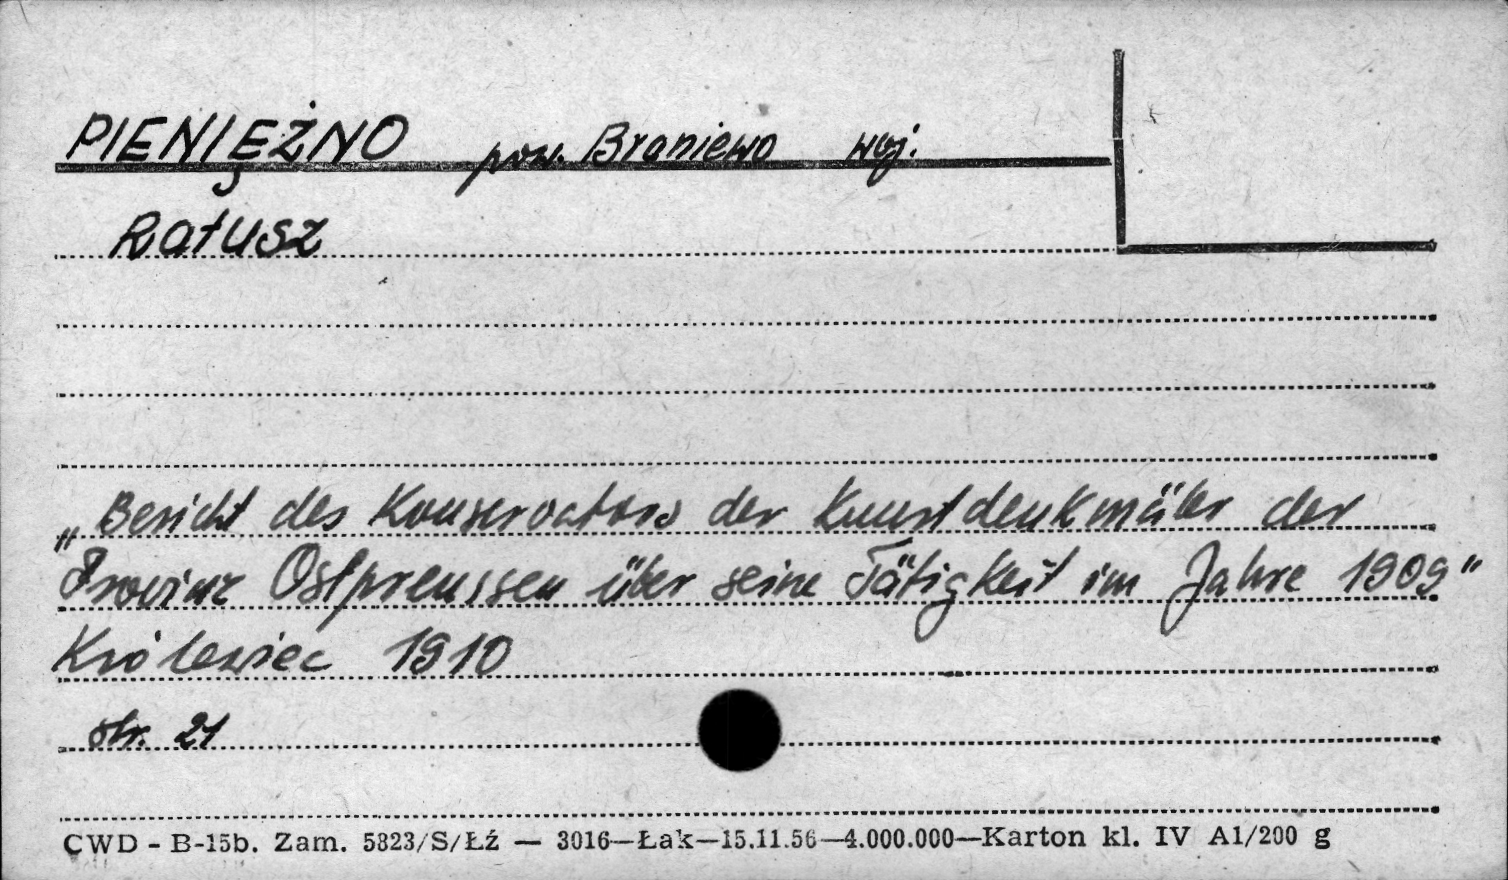 PIENIĘŻNO pow. Braniewo woj.
Ratusz
„Bericht des Konservators der Kunstdenkmäler der
Provinz Ostpreussen über seine Tätigkeit im Jahre 1909"
Królewiec 1910
str. 21
CWD - B-15b. Zam. 5823/S/Łź — 3016—Łak—15.11.56—4.000.000—Karton kl. IV A1/200 g